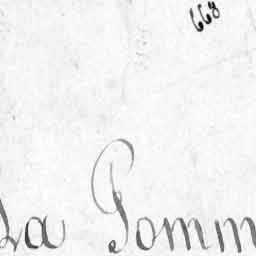 668
La Pomm